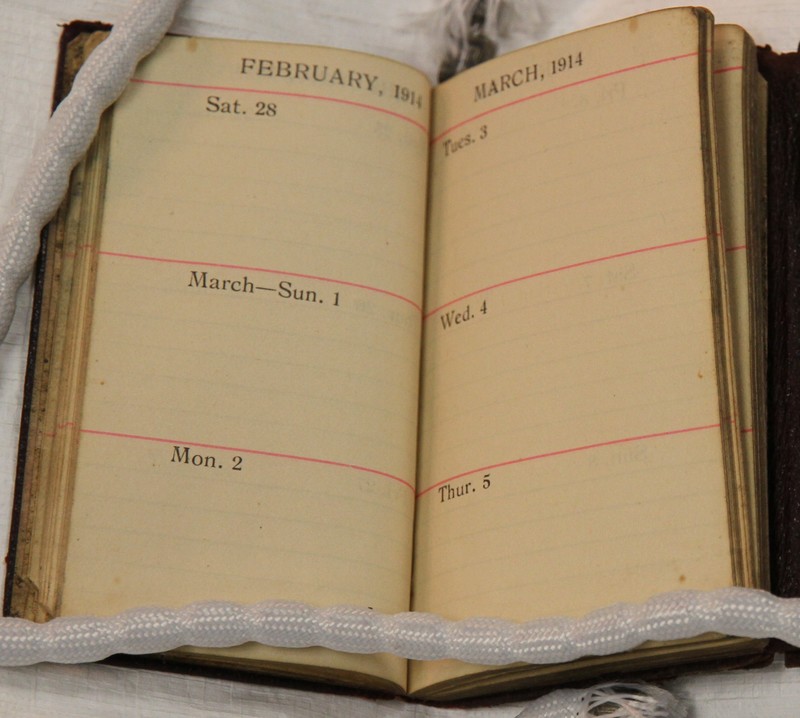 FEBRUARY, 1914
Sat. 28
March—Sun. 1
Mon. 2
MARCH, 1914
Tues. 3
Wed. 4
Thur. 5